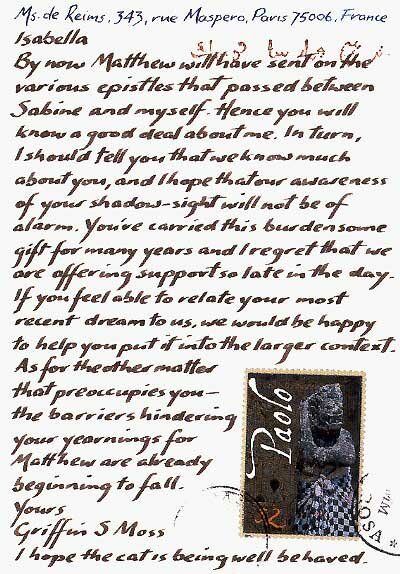 Ms. de Reims, 343, rue Maspero, Paris 75006. France
Isabella
By now Matthew will have sent on the
various epistles that passed between
Sabine and myself. Hence you will
know a good deal about me. In turn,
I should tell you that we know much
about you, and I hope that our awareness
of your shadow-sight will not be of
alarm. You've carried this burdensome
gift for many years and I regret that we
are offering support so late in the day.
If you feel able to relate your most
recent dream to us, we would be happy
to help you put it into the larger context.
As for the other matter
that preoccupies you—
the barriers hindering
your yearnings for
Matthew are already
beginning to fall.
Yours
Griffin S Moss
I hope the cat is being well behaved.
Paolo